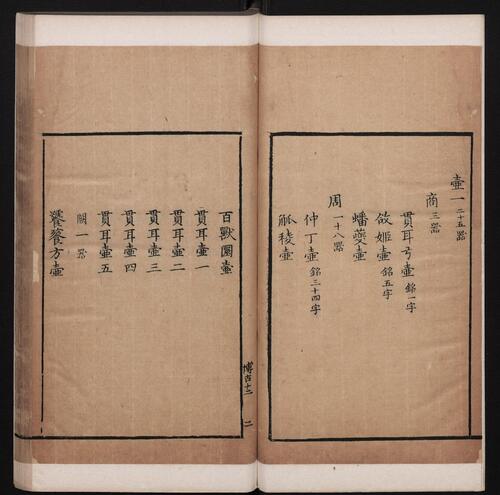 壷一 二十五器
商 三器
貫耳弓壷 銘一字
欱姬壷 銘五字
蟠夔壷
周 一十八器
仲丁壷 銘三十四字
觚稜壷
博古十二 二
百獸圜壷
貫耳壷一
貫耳壷二
貫耳壷三
貫耳壷四
貫耳壷五
闕一器
饕餮方壷